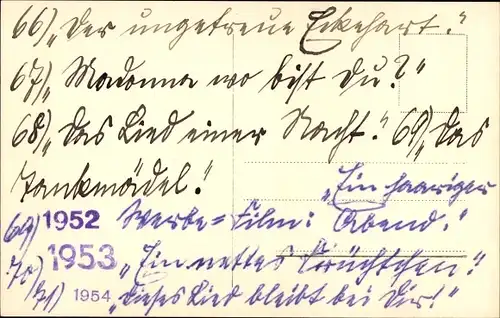 66) „Der ungetreue Eckehart."
67) „Madonna wo bist Du?"
68) „Das Lied einer Nacht." 69) „Das
Tankmädel."
„Ein haariger
69) 1952 Werbe=Film: Abend."
70) 1953 „Ein nettes Früchtchen."
71) 1954 „Dieses Lied bleibt bei Dir!"